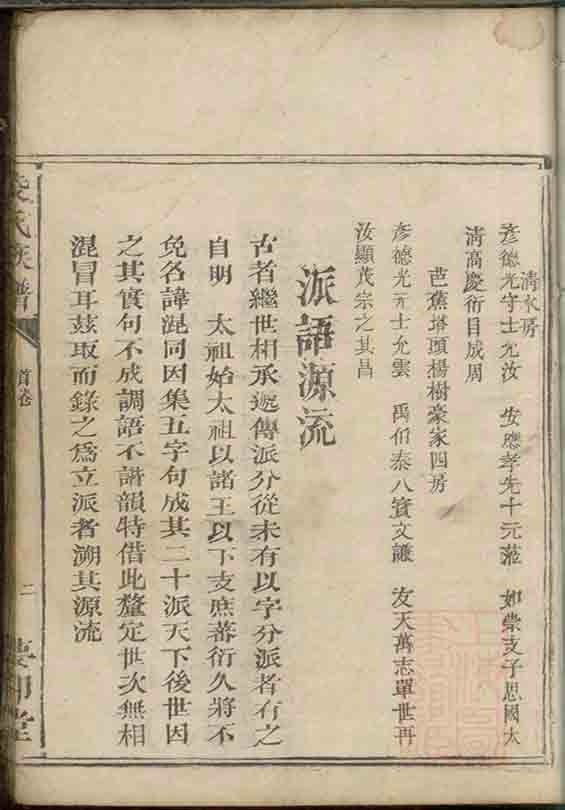 清水房
彦德光守士允汝 安應孝先十元滋 如崇支子思國大
清高慶衍目成周
芭蕉塔頭楊樹豪家四房
彦德光元士允雲 禹伯泰八實文謙 友天萬志單世再
汝顯茂宗之其昌
派語源流
古者繼世相承遞傳派分從未有以字分派者有之
自明 太祖始太祖以諸王以下支庶蕃衍久將不
免名諱混同因集五字句成其二十派天下後世因
之其實句不成調語不諧韻特借此釐定世次無相
混冒耳茲取而錄之為立派者溯其源流
氏族譜
首卷
二
堂